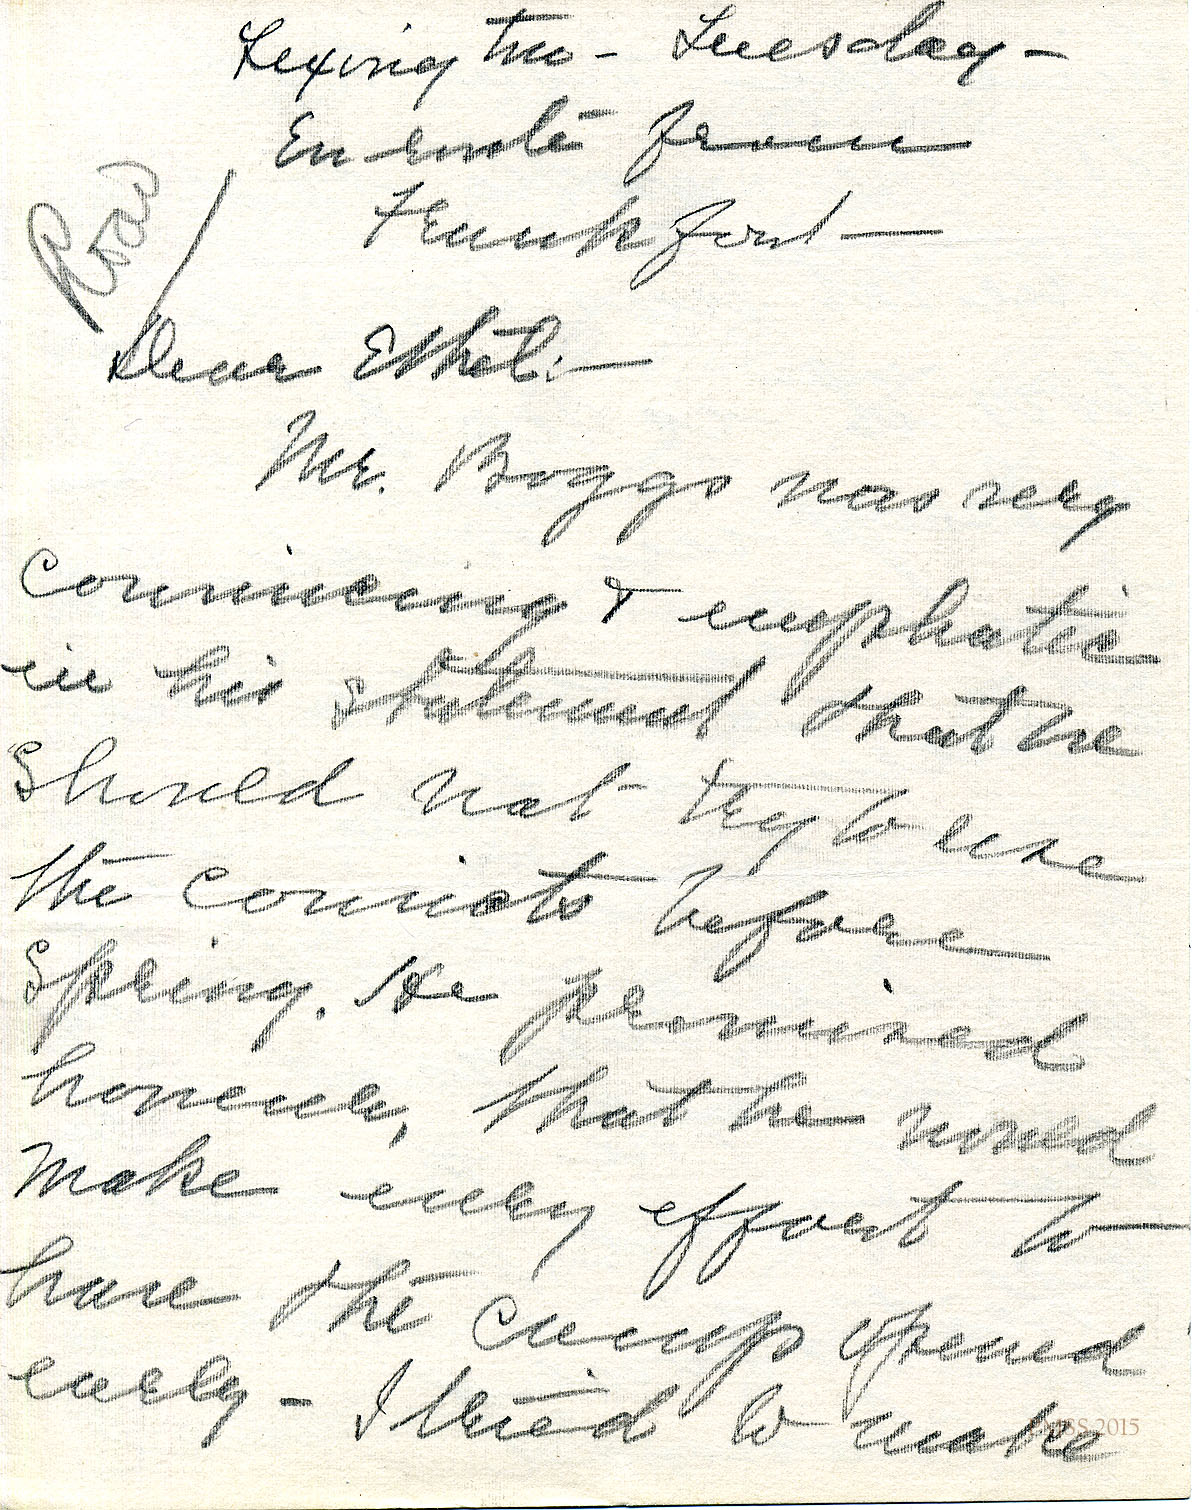 Lexington - Tuesday -
En route from
Frankfort -
Road
Dear Ethel: -
Mr. Boggs was very
convincing & emphatic
in his statement that we
should not try to use
the convicts before
Spring. He promised
however, that he would
make every effort to
have the camp opened
early - I tried to make
PMSS 2015